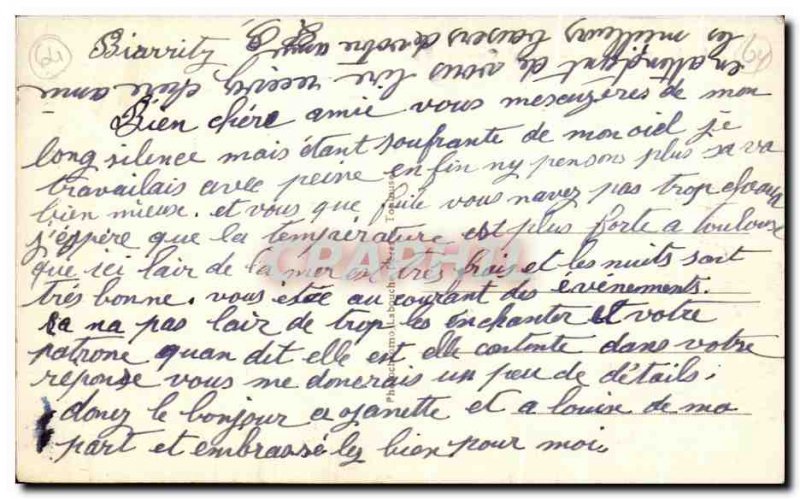 64
Biarritz
64
Bien chére amie vous mescuzeres de mon
long silence mais étant soufrante de mon oeil je
travailais avec peine enfin ny pensons plus sa va
bien mieux. et vous que faite vous navez pas trop chaud
j'espère que la température est plus forte a toulouse
que ici lair de la mer est trés frais et les nuits sont
trés bonne. vous éstée au courant des événements.
sa na pas lair de trop les enchanter et votre
patrone quan dit elle est elle contente dans votre
reponse vous me donerais un peu de détails.
donez le bonjour a ganette et a louise de ma
part et embrassé les bien pour moi.
en attendant de vous lire recevez chere amie
les meilleurs baisers de votre amie
CPAPHIL